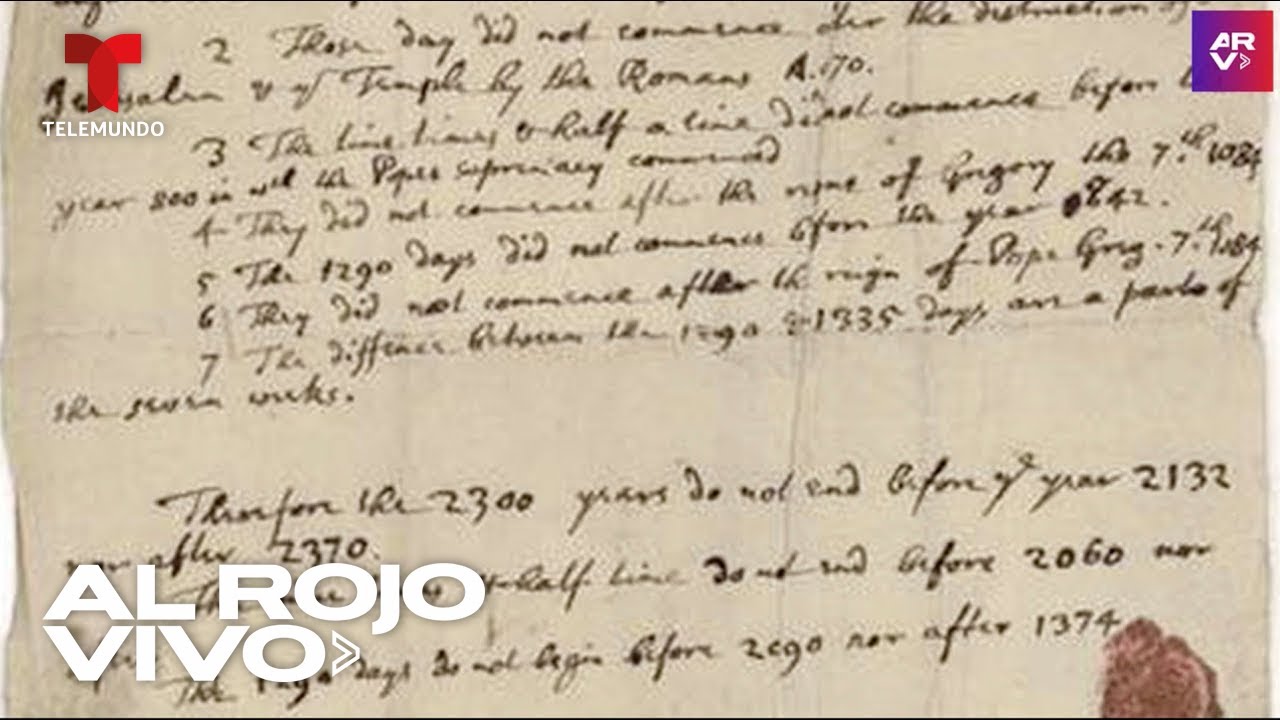 2 Those day did not commence after the destruction of
Jerusalem & ye Temple by the Romans A. 70.
3 The time times & half a time did not commence before the
year 800 in wch the Popes supremacy commenced
4 They did not commence after the reigne of Gregory the 7.th 1084
5 The 1290 days did not commence before the year 842.
6 They did not commence after the reign of Pope Greg. 7.th 1084
7 The diffence between the 1290 & 1335 days are a parts of
the seven weeks.
Therefore the 2300 years do not end before ye year 2132
nor after 2370.
half time do not end before 2060 nor
The 1290 days do not begin before 2090 nor after 1374
TELEMUNDO
ARV
AL ROJO
VIVO